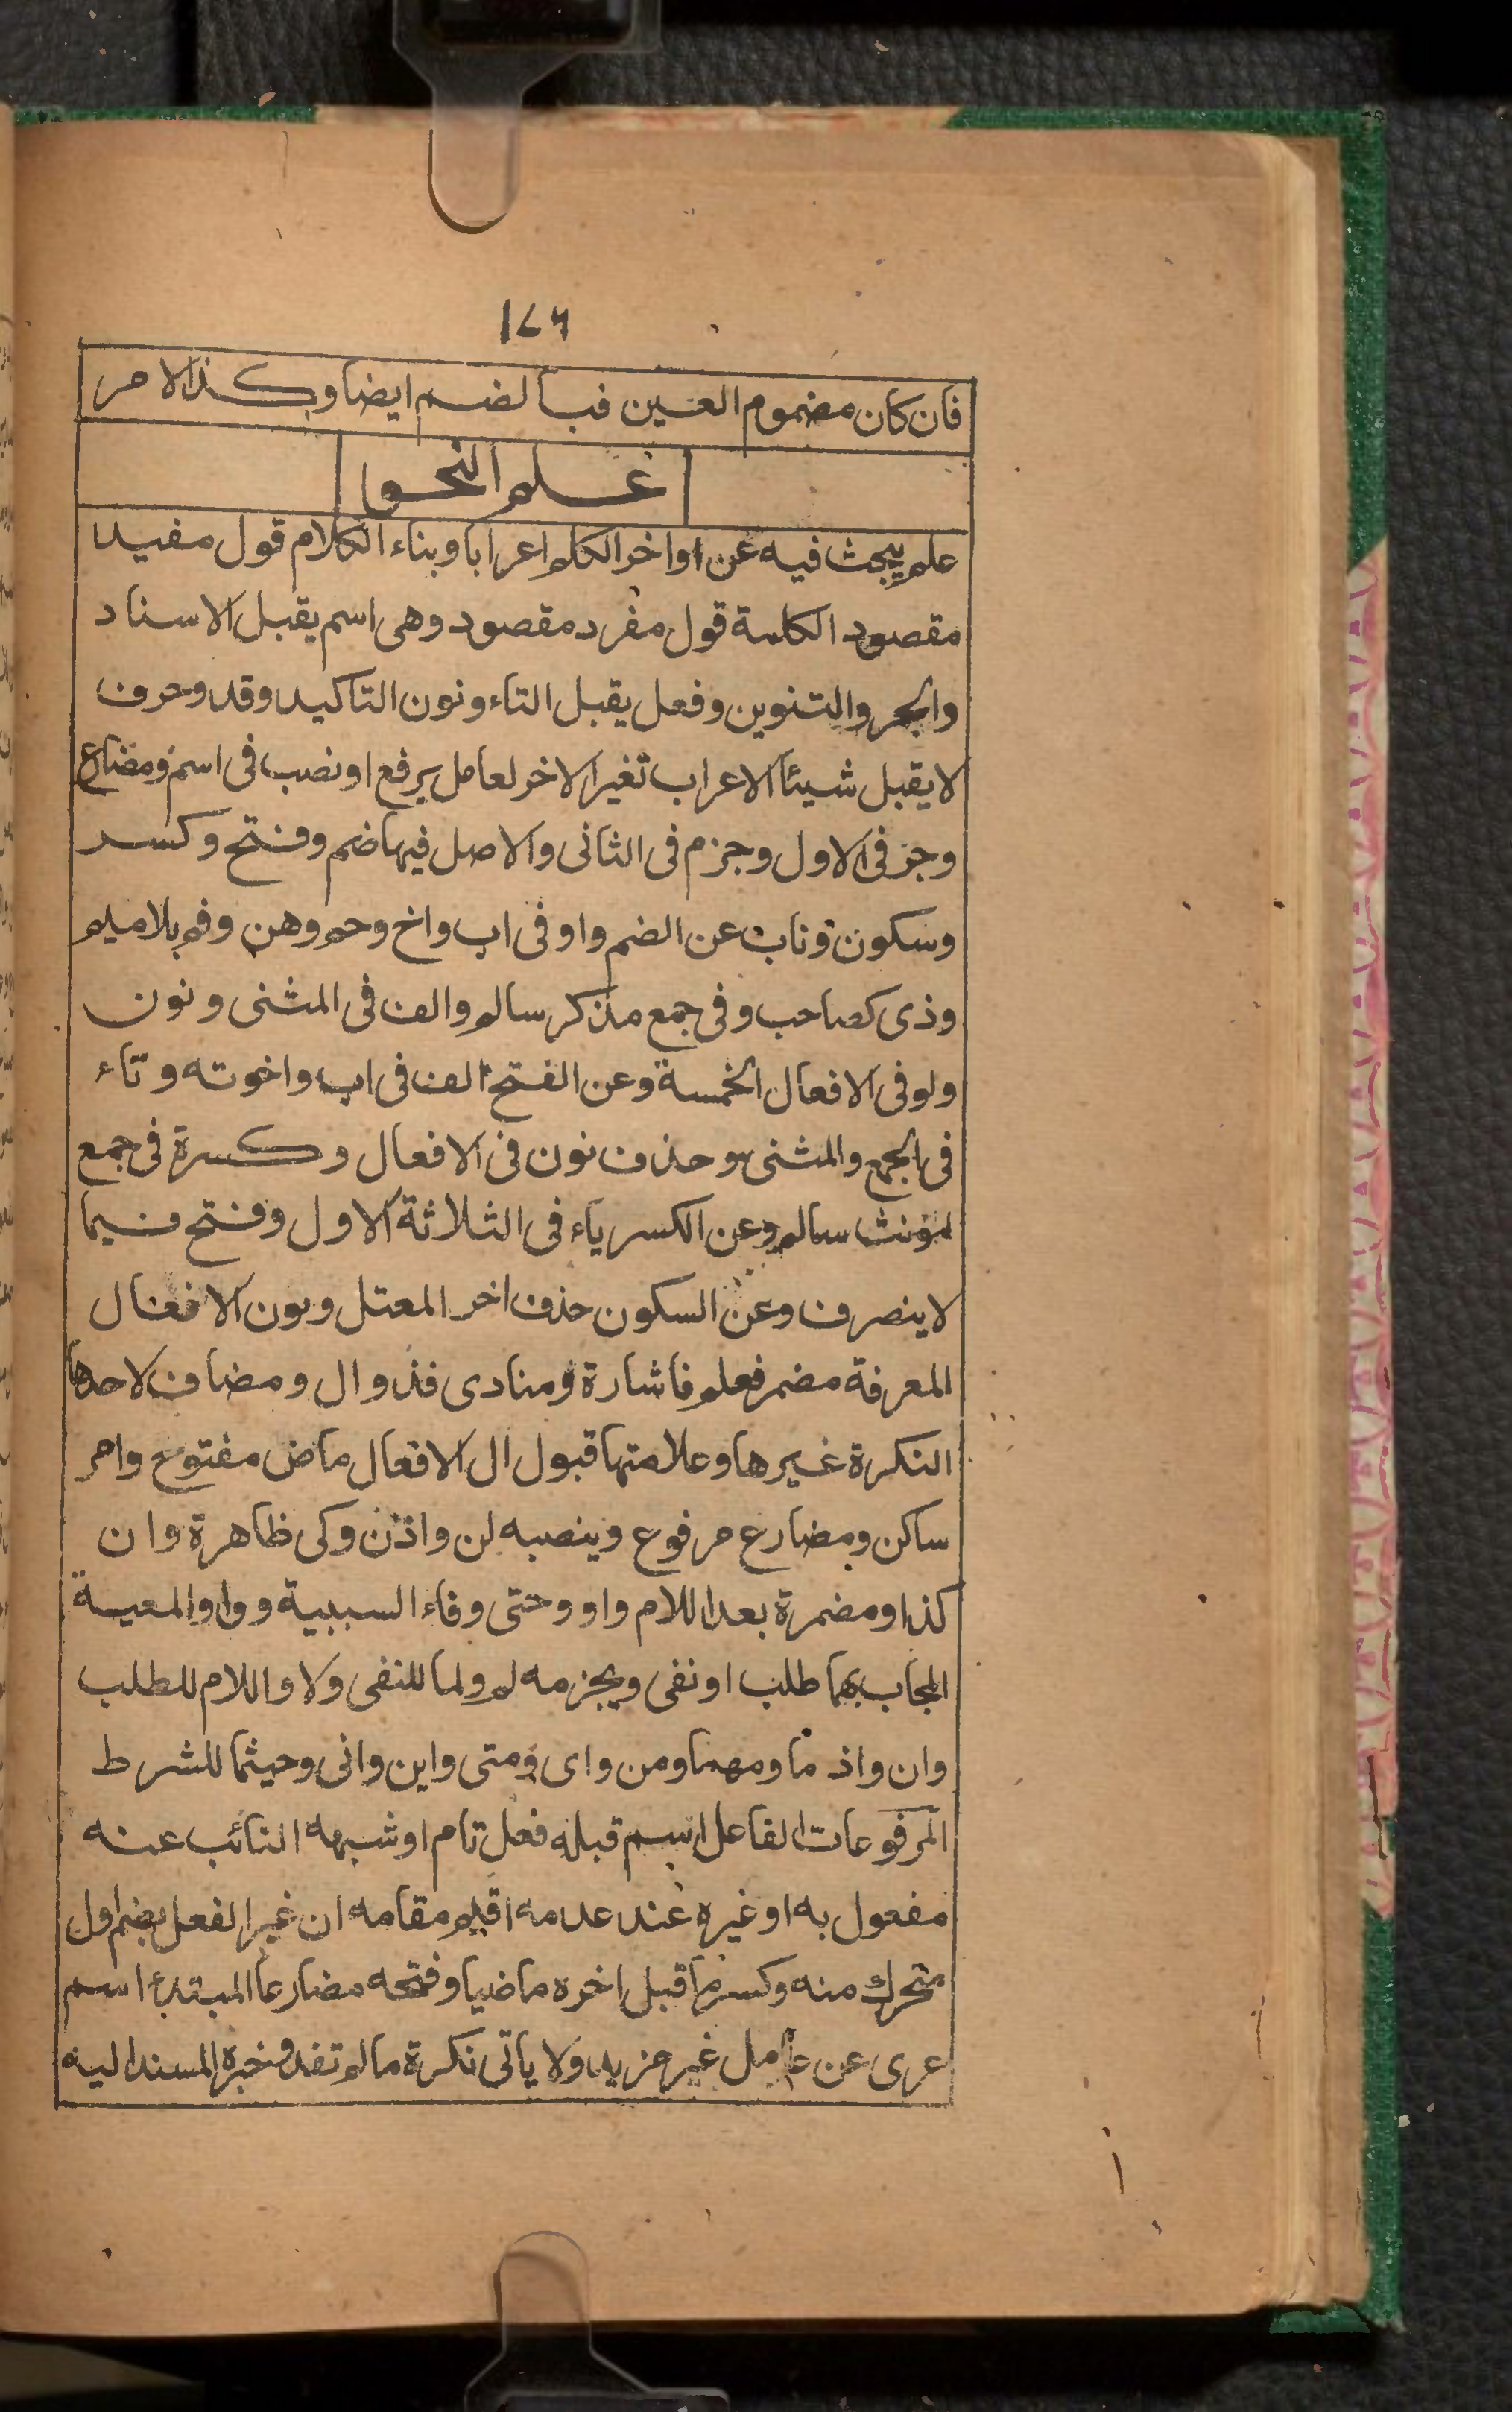 ١٧٦
فان كان مضموم العين فبالضم ايضا وكذا الامر
علم النحو
علم يبحث فيه عن اواخر الكلم اعرابا وبناء الكلام قول مفيد
مقصود الكلمة قول مفرد مقصود وهى اسم يقبل الاسناد
والجر والتنوين وفعل يقبل التاء ونون التاكيد وقد وحرف
لا يقبل شيئا الاعراب تغير الاخر لعامل برفع او نصب فى اسم ومضارع
وجر فى الاول وجزم فى الثانى والاصل فيها ضم وفتح وكسر
وسكون وناب عن الضم واو فى اب واخ وحم وهن وفم بلا ميم
وذى كصاحب وفى جمع مذكر سالم والف فى المثنى ونون
ولو فى الافعال الخمسة وعن الفتح الف فى اب واخوته وتاء
فى الجمع والمثنى وحذف نون فى الافعال وكسرة فى جمع
مؤنث سالم وعن الكسر ياء فى الثلاثة الاول وفتح فيما
لا ينصرف وعن السكون حذف اخر المعتل ونون الافعال
المعرفة مضمر فعلم فاشارة ومنادى فذو ال ومضاف لاحدها
النكرة غيرها وعلامتها قبول ال الافعال ماض مفتوح وامر
ساكن ومضارع مرفوع وينصبه لن واذن وكى ظاهرة وان
كذا ومضمرة بعد اللام واو وحتى وفاء السببية وواو المعية
المجاب بهما طلب او نفى ويجزمه لم ولما للنفى ولا واللام للطلب
وان واذ ما ومهما ومن واى ومتى واين وانى وحيثما للشرط
المرفوعات الفاعل اسم قبله فعل تام او شبهه النائب عنه
مفعول به او غيره عند عدمه اقيم مقامه ان غير الفعل بضم اول
متحرك منه وكسر ما قبل اخره ماضيا وفتحه مضارعا المبتدأ اسم
عرى عن عامل غير مزيد ولا ياتى نكرة ما لم تفد وخبره المسند اليه